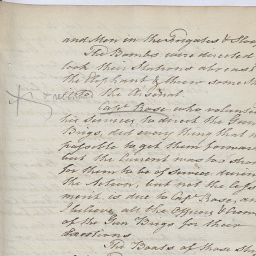 and Men in the Frigates & Sloo
The Bombs were directed
took their Stations abreast
the Elephant & threw some Sh
into the Arsenal.
Capt Rose who volunteer
his Services to direct the Gun
Brigs, did every thing that w
possible to get them forward
but the Current was too stron
for them to be of Service durin
the Action, but not the less
merit is due to Capt Rose, an
I believe all the Officers & Crew
of the Gun Brigs for their
Exertions
The Boats of those Sh